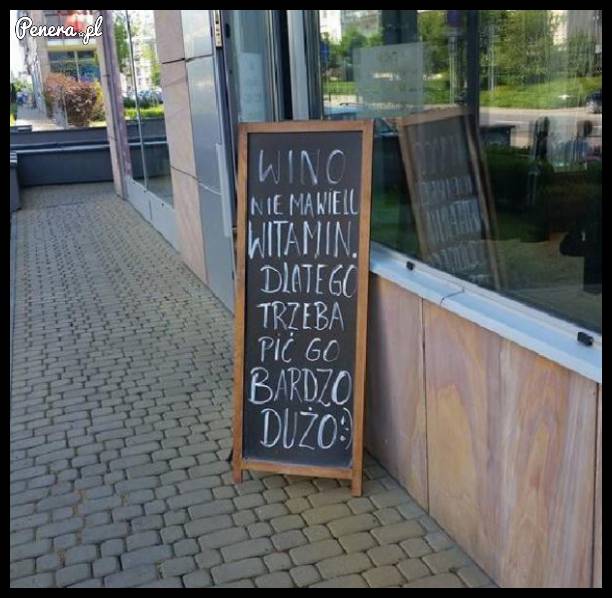 Penera.pl
WINO
NIE MA WIELU
WITAMIN.
DLATEGO
TRZEBA
PIĆ GO
BARDZO
DUŻO:)